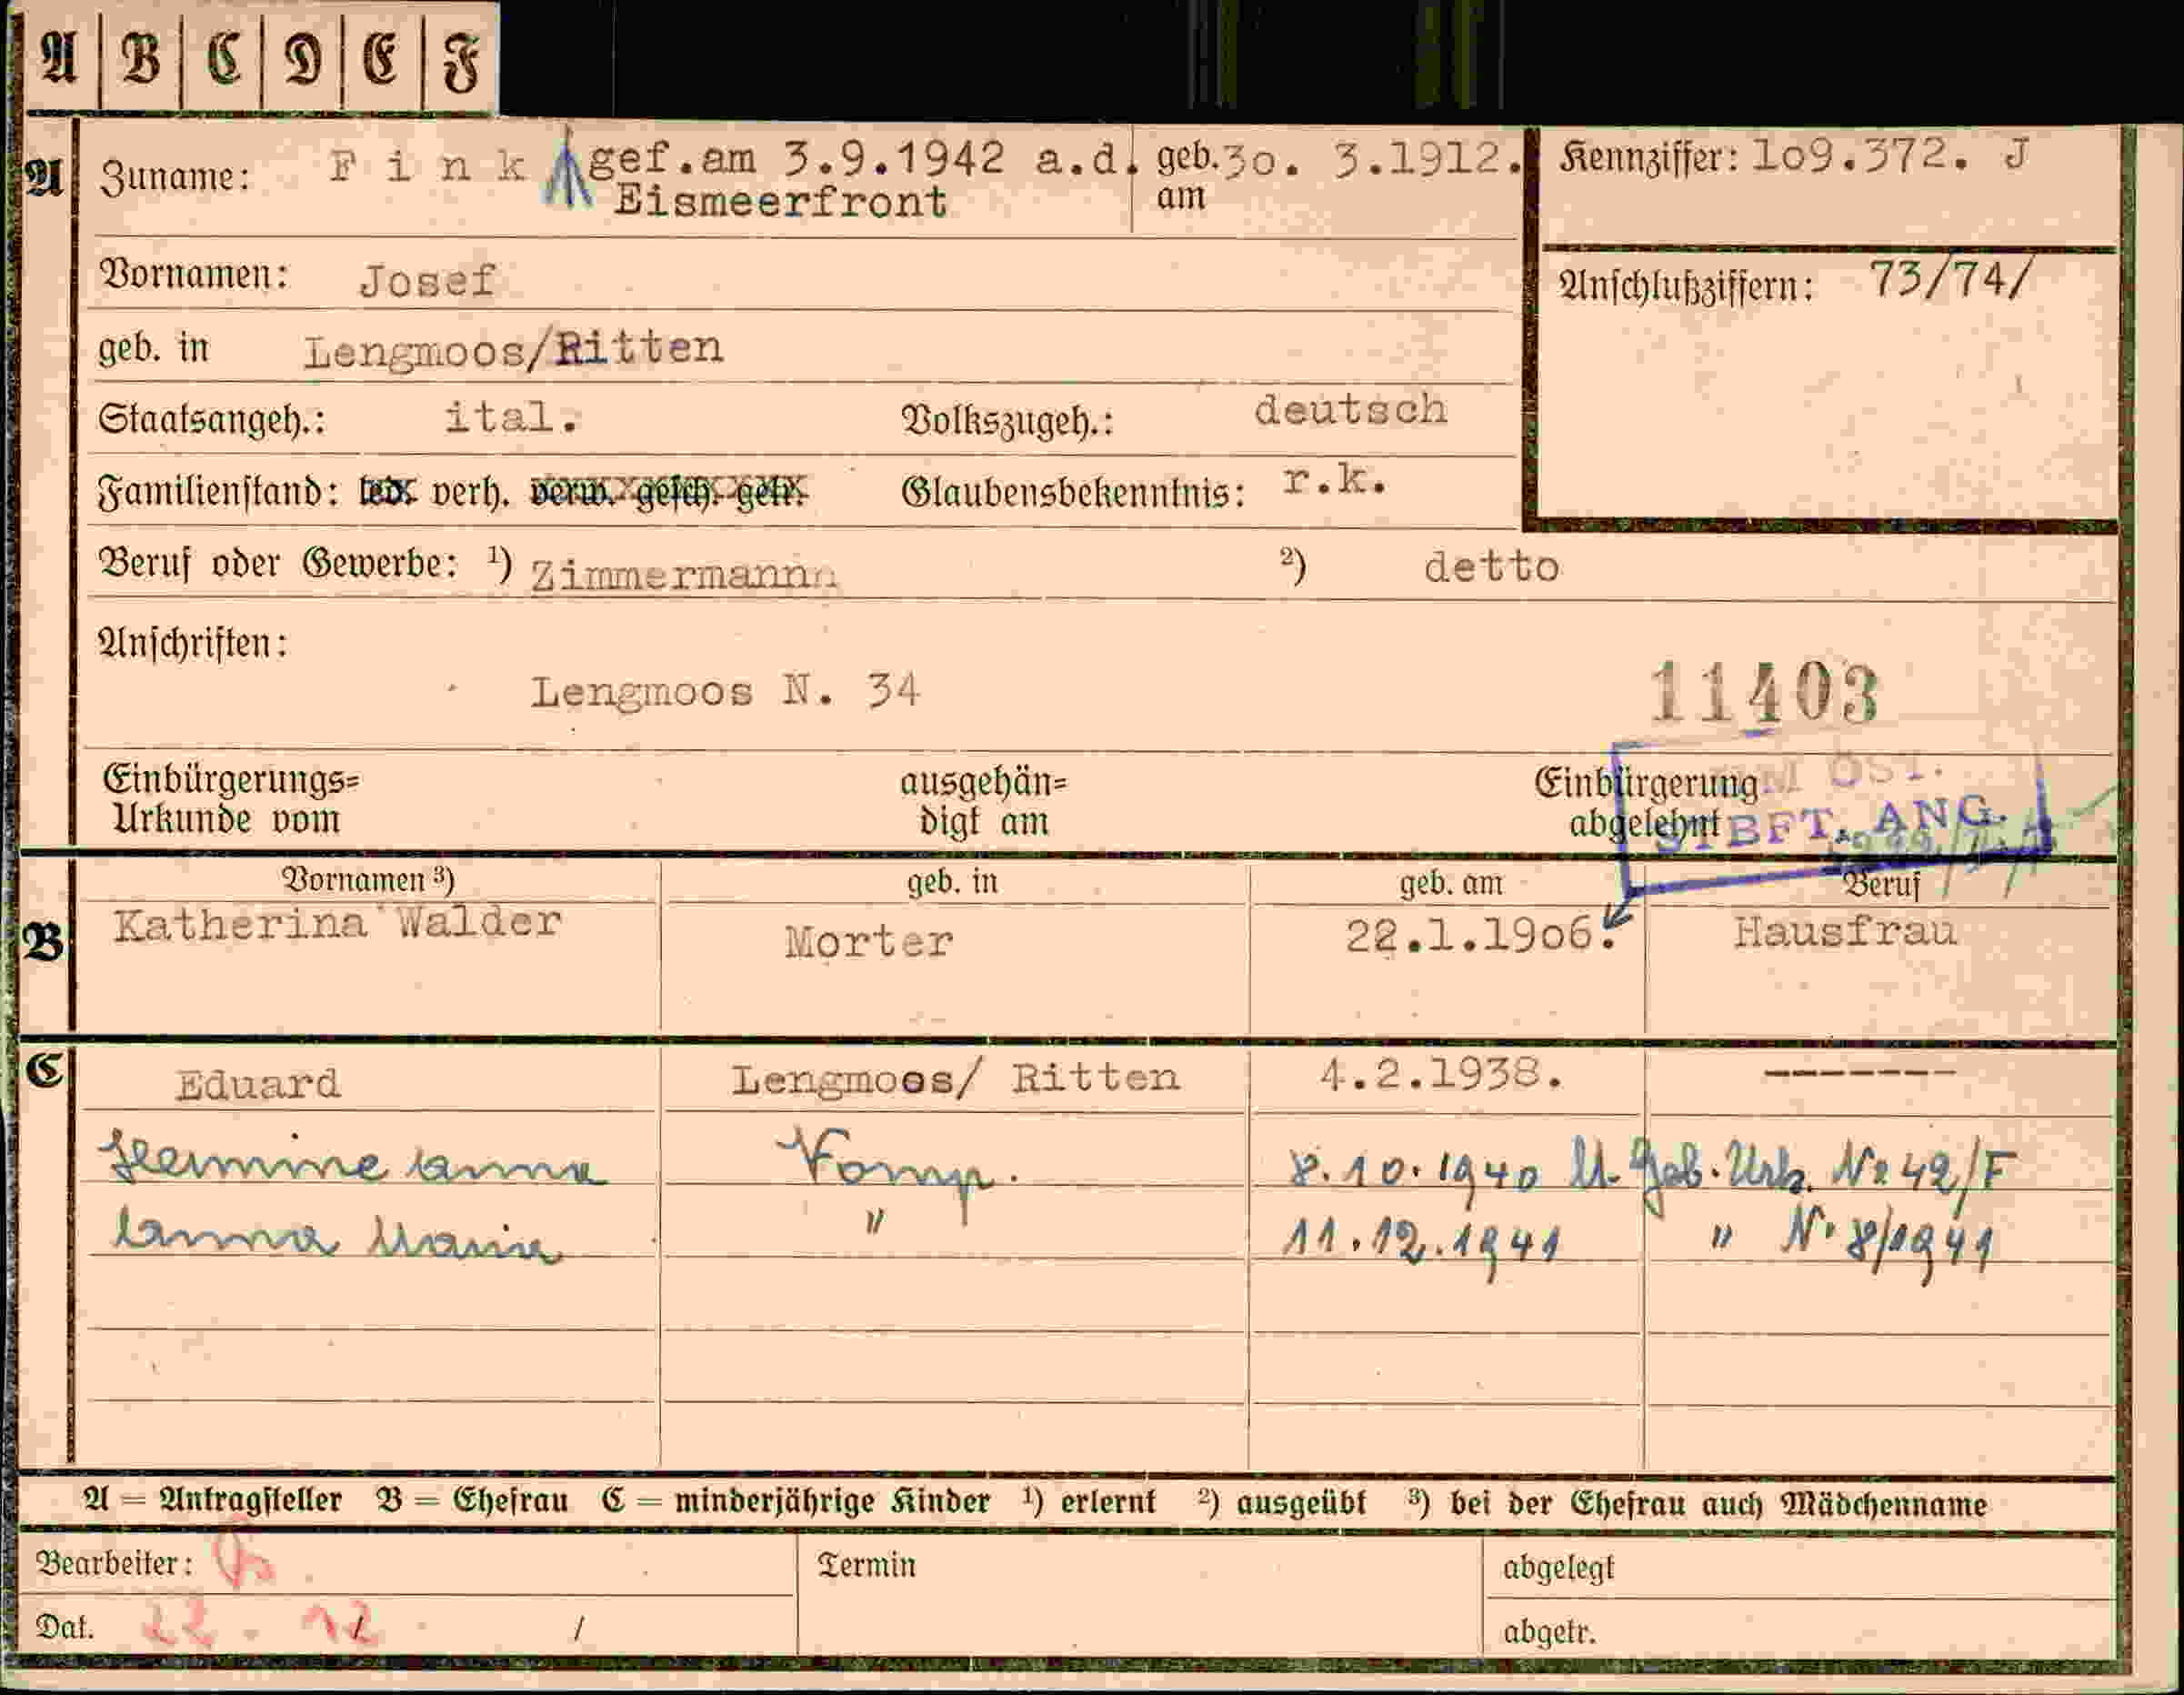 A B C D E F
A Zuname: Fink gef.am 3.9.1942 a.d. Eismeerfront geb. am 3o. 3.1912. Kennziffer: 1o9.372. J
Vornamen: Josef Anschlußziffern: 73/74/
geb. in Lengmoos/Ritten
Staatsangeh.: ital. Volkszugeh.: deutsch
Familienstand: led. verh. verw. gesch. getr. Glaubensbekenntnis: r.k.
Beruf oder Gewerbe: 1) Zimmermann 2) detto
Anschriften:
Lengmoos N. 34 11403
Einbürgerungs= ausgehän= Einbürgerung ÖST.
Urkunde vom digt am abgelehnt STBFT. ANG.
Vornamen 3) geb. in geb. am Beruf
B Katherina Walder Morter 22.1.19o6. Hausfrau
C Eduard Lengmoos/ Ritten 4.2.1938. -------
Hermine Anna Vomp. 8.10.1940 lt. Geb. Urk. No 42/F
Anna Maria " 11.12.1941 " No 8/1941
A = Antragsteller B = Ehefrau C = minderjährige Kinder 1) erlernt 2) ausgeübt 3) bei der Ehefrau auch Mädchenname
Bearbeiter: Termin abgelegt
Dat. 22. 12 / / abgetr.